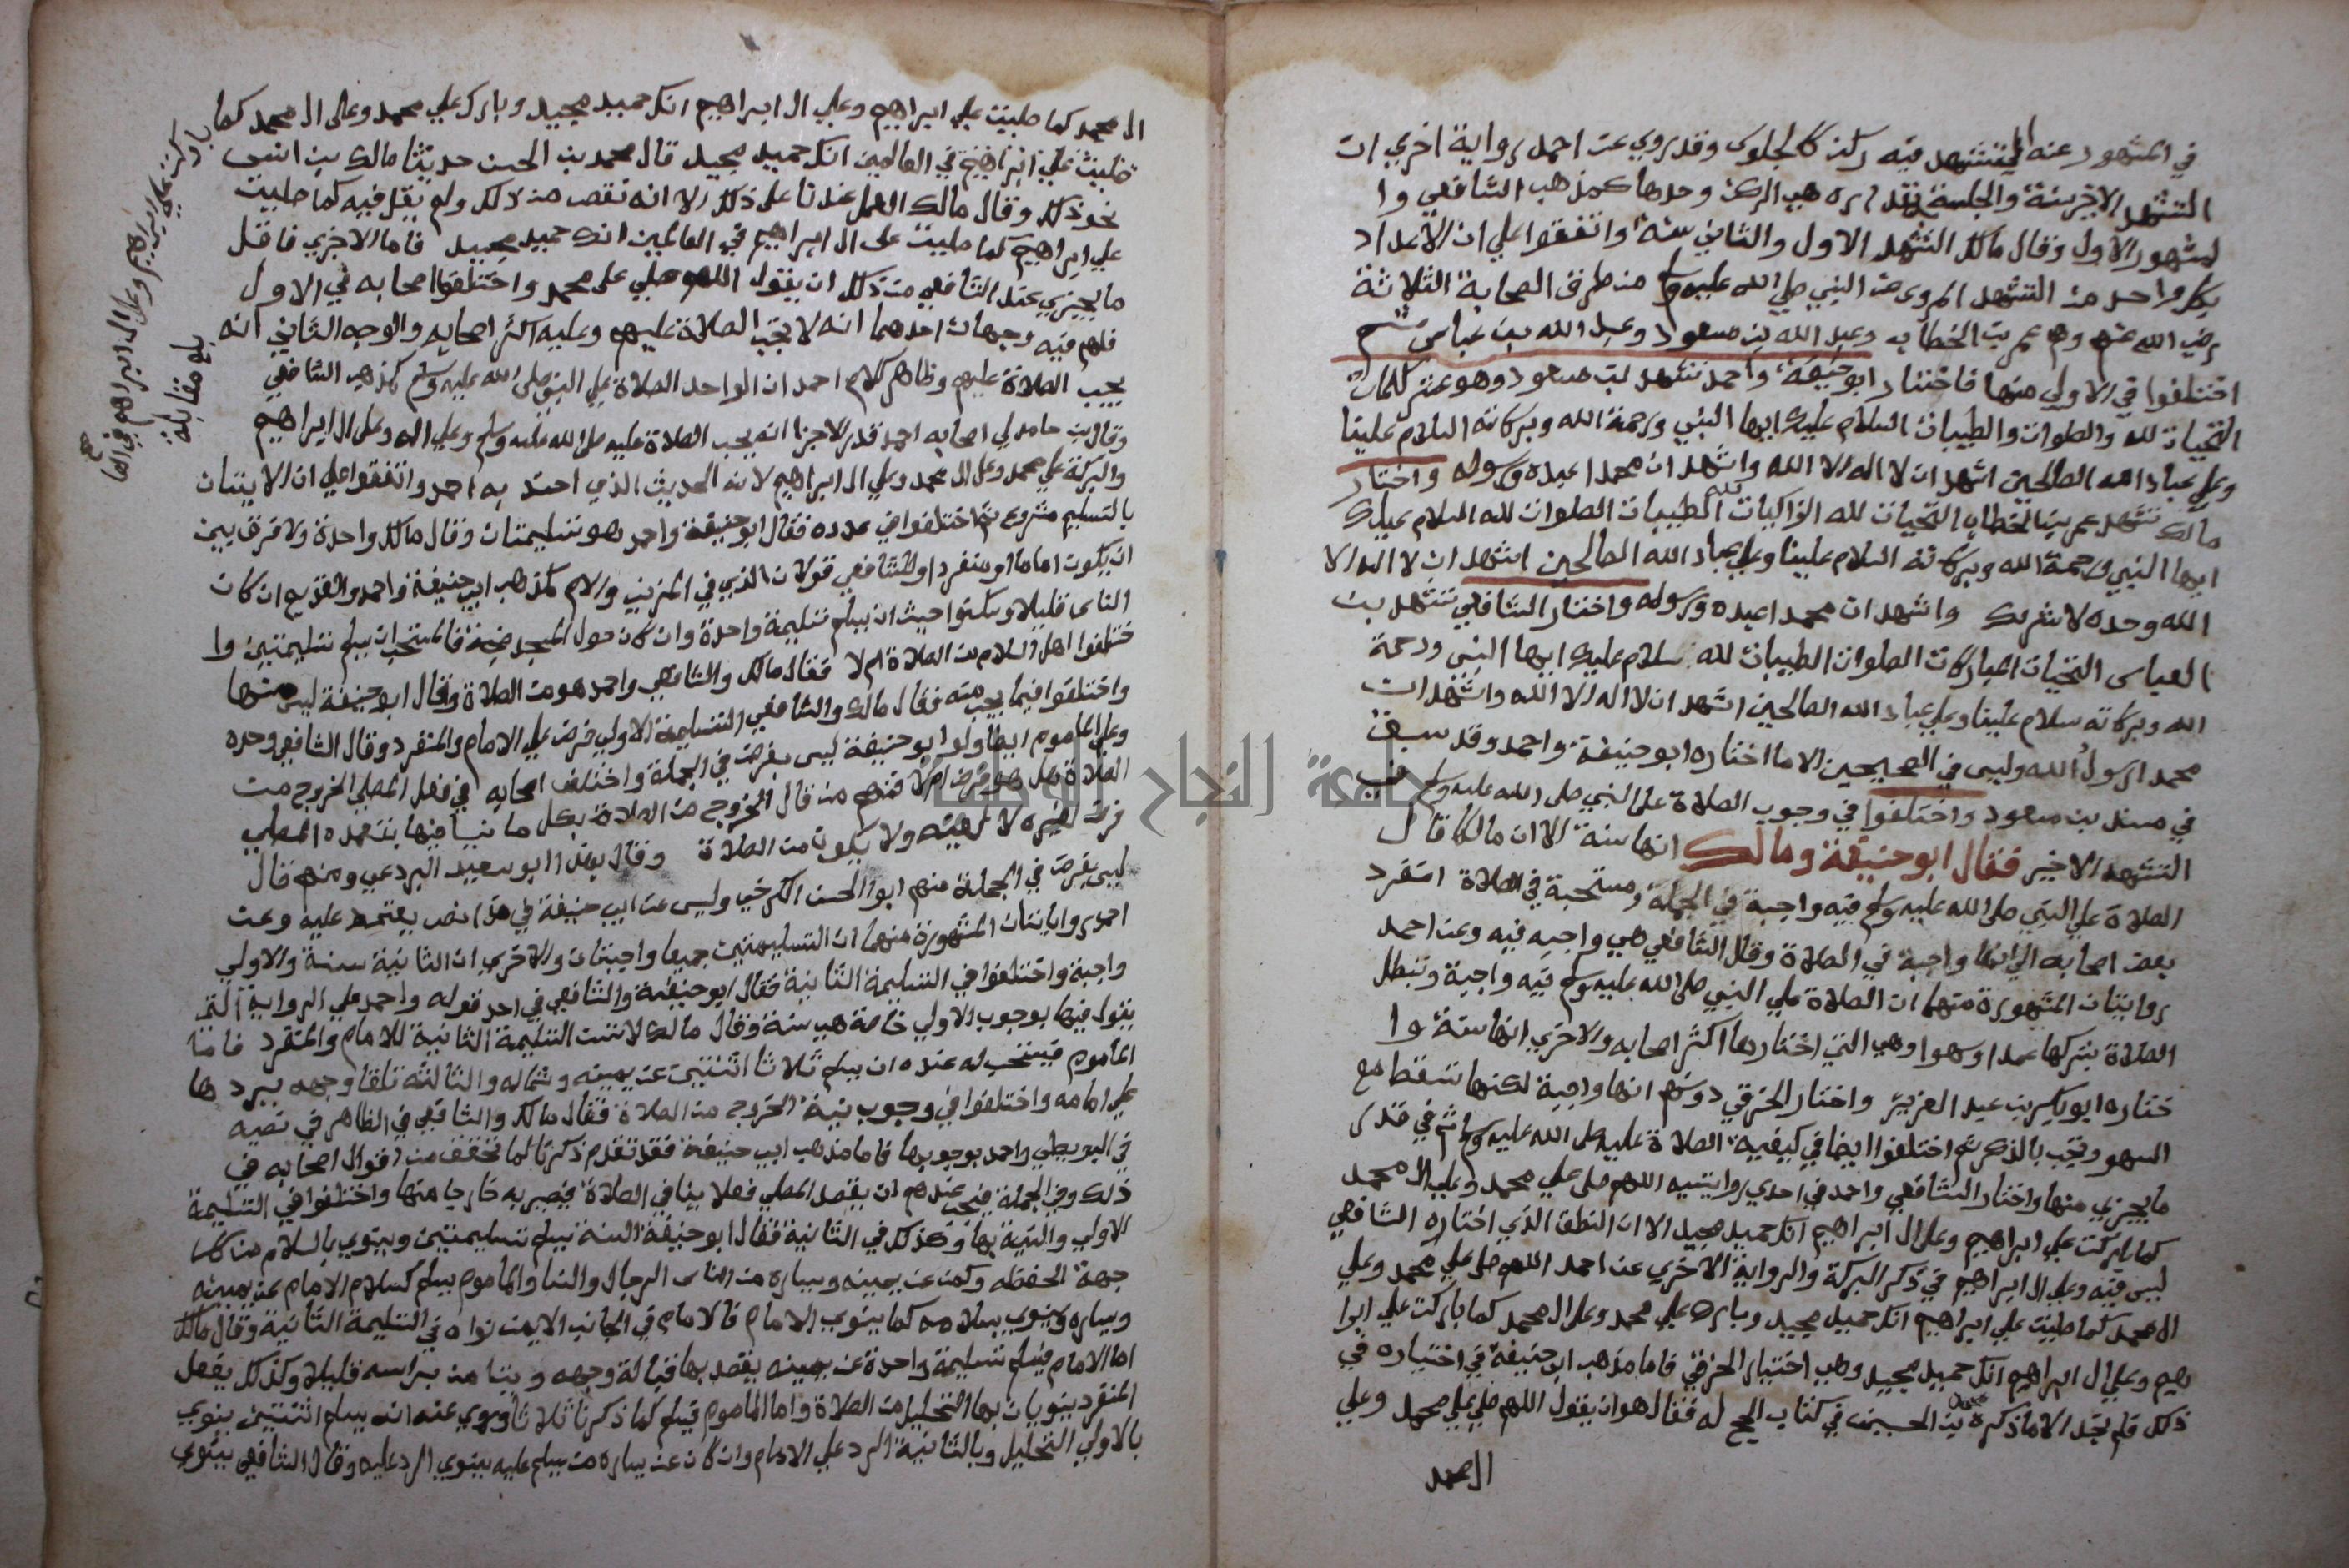 في المشهور عنه ان التشهد فيه ركن كالجلوس وقد روي عن احمد رواية اخري ان
التشهد الاخير سنة والجلسة بقدره هي الركن وحدها كمذهب الشافعي وا
لمشهور الاول وقال مالك التشهد الاول والثاني سنة واتفقوا علي ان الاعتداد
بكل واحد من التشهد المروي عن النبي صلي الله عليه وسلم من طرق الصحابة الثلاثة
رضي الله عنهم وهم عمر بن الخطاب وعبد الله بن مسعود وعبد الله بن عباس ثم
اختلفوا في الاولي منها فاختار ابو حنيفة واحمد تشهد بن مسعود وهو عشر كلمات
التحيات لله والصلوات والطيبات السلام عليك ايها النبي ورحمة الله وبركاته السلام علينا
وعلي عباد الله الصالحين اشهد ان لا اله الا الله واشهد ان محمدا عبده ورسوله واختار
مالك تشهد عمر بن الخطاب التحيات لله الزاكيات لله الطيبات الصلوات لله السلام عليك
ايها النبي ورحمة الله وبركاته السلام علينا وعلي عباد الله الصالحين اشهد ان لا اله الا
الله وحده لا شريك واشهد ان محمدا عبده ورسوله واختار الشافعي تشهد بن
العباس التحيات المباركات الصلوات الطيبات لله سلام عليك ايها النبي ورحمة
الله وبركاته سلام علينا وعلي عباد الله الصالحين اشهد ان لا اله الا الله واشهد ان
محمدا رسول الله وليس في الصحيحين الا ما اختاره ابو حنيفة واحمد وقد سبق
في مسند بن مسعود واختلفوا في وجوب الصلاة علي النبي صلي الله عليه وسلم في
التشهد الاخير فقال ابو حنيفة ومالك انها سنة الا ان مالكا قال
الصلاة علي النبي صلي الله عليه وسلم فيه واجبة في الجملة ومستحبة في الصلاة انفرد
بعض اصحابه الي انها واجبة في الصلاة وقال الشافعي هي واجبه فيه وعن احمد
روايتان المشهورة منهما ان الصلاة علي النبي صلي الله عليه وسلم فيه واجبة وتبطل
الصلاة بتركها عمدا وسهوا وهي التي اختارها اكثر اصحابه والاخري انها سنة وا
ختاره ابو بكر بن عبد العزيز واختار الخرقي دونهم انها واجبة لكنها تسقط مع
السهو وتجب بالذكر ثم اختلفوا ايضا في كيفية الصلاة عليه صلى الله عليه وسلم في قدر
ما يجزي منها واختار الشافعي واحمد في احدي روايتيه اللهم صل علي محمد وعلي ال محمد
كما باركت علي ابراهيم وعلي ال ابراهيم انك حميد مجيد الا ان النطق الذي اختاره الشافعي
ليس فيه وعلي ال ابراهيم في ذكر البركة والرواية الاخري عن احمد اللهم صل علي محمد وعلي
ال محمد كما صليت علي ابراهيم انك حميد مجيد وبارك علي محمد وعلي ال محمد كما باركت علي ابرا
هيم وعلي ال ابراهيم انك حميد مجيد وهي اختيار الخرقي فاما مذهب ابي حنيفة في اختياره في
ذلك فلم نجد الا ما ذكره محمد بن الحسين في كتاب الحج له فقال هو ان يقول اللهم صل علي محمد وعلي
ال محمد
ال محمد كما صليت علي ابراهيم وعلي ال ابراهيم انك حميد مجيد وبارك علي محمد وعلي ال محمد كما
صليت علي ابراهيم في العالمين انك حميد مجيد قال محمد بن الحسن حدثنا مالك بن انس
نحو ذلك وقال مالك العمل عندنا على ذلك الا انه نقص من ذلك ولم يقل فيه كما صليت
علي ابراهيم كما صليت على ال ابراهيم في العالمين انك حميد مجيد فاما الاجزي فاقل
ما يجزي عند الشافعي من ذلك ان يقول اللهم صلي على محمد واختلفوا اصحابه في الاول
فلهم فيه وجهان احدهما انه لا تجب الصلاة عليهم وعليه اكثر اصحابه والوجه الثاني انه
يجب الصلاة عليهم وظاهر كلام احمد ان الواحد الصلاة علي النبي صلى الله عليه وسلم كمذهب الشافعي
وقال بن حامد لي اصحابه احمد قدر الاجزا انه يجب الصلاة عليه صلى الله عليه وسلم وعلي اله وعلي ال ابراهيم
والبركة علي محمد وعلى ال محمد وعلي ال ابراهيم لانه الحديث الذي اخذ به احمد واتفقوا علي ان الاتيان
بالتسليم مشروع ثم اختلفوا في عدده فقال ابو حنيفة واحمد هو تسليمتان وقال مالك واحدة ولا فرق بين
ان يكون اماما او منفردا وللشافعي قولان الذي في المزني والام كمذهب ابي حنيفة واحمد والقديم ان كان
الناس قليلا وسكتوا حيث ان يسلم تسليمة واحدة وان كان حول المسجد ضجة فالمستحب ان يسلم تسليمتين وا
ختلفوا هل السلام من الصلاة ام لا فقال مالك والشافعي واحمد هو من الصلاة وقال ابو حنيفة ليس منها
واختلفوا فيما يجب منه فقال مالك والشافعي التسليمة الاولي فرض علي الامام والمنفرد وقال الشافعي وحده
وعلي الماموم ايضا وقال ابو حنيفة ليس بفرض في الجملة واختلف اصحابه في فعل المصلي الخروج من
الصلاة هل هو فرض ام لا فمنهم من قال الخروج من الصلاة بكل ما ينافيها بتعمده المصلي
فرض لغيره لا لعينه ولا يكون من الصلاة وقال بهذا ابو سعيد البردعي ومنهم قال
ليس بفرض في الجملة منهم ابو الحسن الكرخي وليس عن ابي حنيفة في هذا نص يعتمد عليه وعن
احمد روايتان المشهورة منهما ان التسليمتين جميعا واجبتان والاخري ان الثانية سنة والاولي
واجبة واختلفوا في التسليمة الثانية فقال ابو حنيفة والشافعي في احد قوله واحمد علي الرواية التي
يقول فيها بوجوب الاولي خاصة هي سنة وقال مالك لا تسن التسليمة الثانية للامام والمنفرد فاما
الماموم فيستحب له عنده ان يسلم ثلاثا اثنتين عن يمينه وشماله والثالثه تلقا وجهه يرد ها
علي امامه واختلفوا في وجوب نية الخروج من الصلاة فقال مالك والشافعي في الظاهر في نصيه
في البويطي واحمد بوجوبها فاما مذهب ابي حنيفة فقد تقدم ذكرنا لما تحقق من اقوال اصحابه في
ذلك وفي الجملة فيجب عندهم ان يقصد المصلي فعلا ينافي الصلاة فيصير به خارجا منها واختلفوا في التسليمة
الاولي والنية بها وكذلك في الثانية فقال ابو حنيفة السنة يسلم تسليمتين وينوي بالسلام من كل
جهة الحفظه وكمن عن يمينه ويساره من الناس الرجال والنسا والماموم يسلم كسلام الامام عن يمينه
ويساره وينوي بسلامه كما ينوي الامام فالامام في الجانب الايمن نواه في التسليمة الثانية وقال مالك
اما الامام فيسلم تسليمة واحدة عن يمينه يقصد بها قبالة وجهه ويتيامن براسه قليلا وكذلك يفعل
المنفرد ينويان بها التحليل من الصلاة واما الماموم فيسلم كما ذكرنا ثلاثا وروي عنه انه يسلم اثنتين ينوي
بالاولي التحليل وبالثانية الرد علي الامام وان كان عن يساره من يسلم عليه ينوي الرد عليه وقال الشافعي ينوي
باركت علي ابراهيم وعلى ال ابراهيم في العا صح
بلغ مقابلة
جامعة النجاح الوطنية